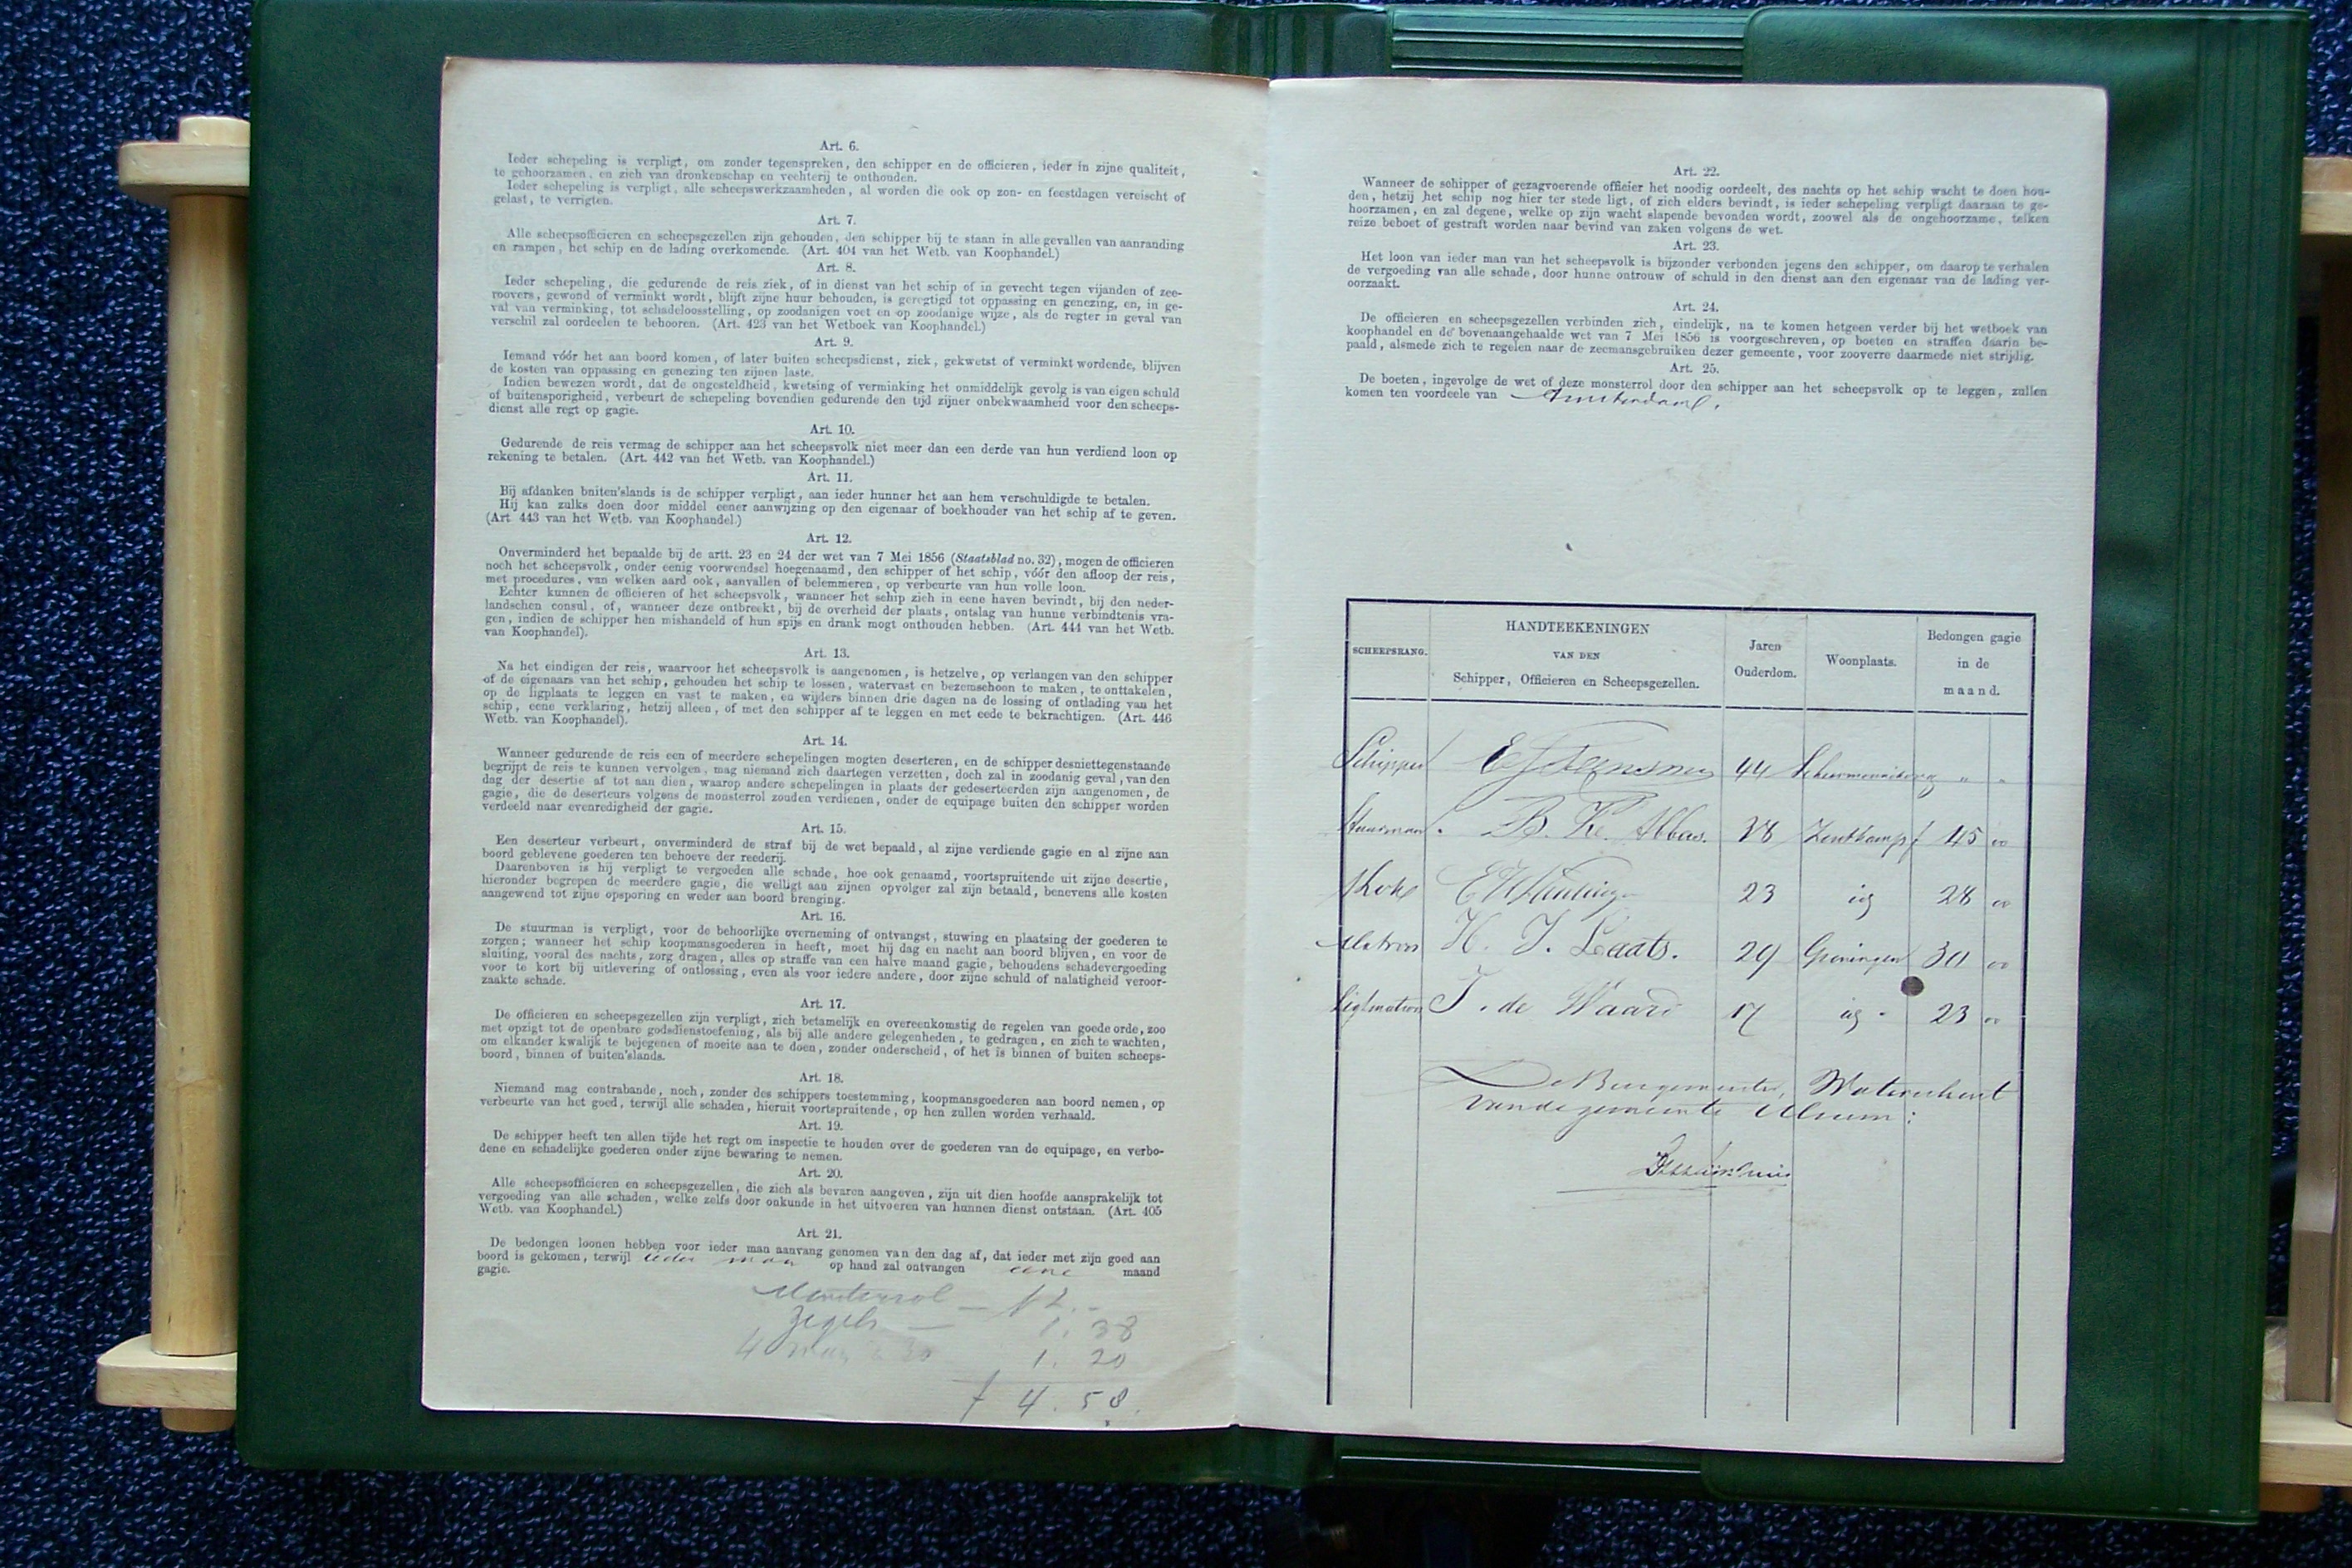 Art. 6.
Ieder schepeling is verpligt, om zonder tegenspreken, den schipper en de officieren, ieder in zijne qualiteit,
te gehoorzamen, en zich van dronkenschap en vechterij te onthouden.
Ieder schepeling is verpligt, alle scheepswerkzaamheden, al worden die ook op zon- en feestdagen vereischt of
gelast, te verrigten.
Art. 7.
Alle scheepsofficieren en scheepsgezellen zijn gehouden, den schipper bij te staan in alle gevallen van aanranding
en rampen, het schip en de lading overkomende. (Art. 404 van het Wetb. van Koophandel.)
Art. 8.
Ieder schepeling, die gedurende de reis ziek, of in dienst van het schip of in gevecht tegen vijanden of zee-
roovers, gewond of verminkt wordt, blijft zijne huur behouden, is geregtigd tot oppassing en genezing, en, in ge-
val van verminking, tot schadeloosstelling, op zoodanigen voet en op zoodanige wijze, als de regter in geval van
verschil zal oordeelen te behooren. (Art. 423 van het Wetboek van Koophandel.)
Art. 9.
Iemand vóór het aan boord komen, of later buiten scheepsdienst, ziek, gekwetst of verminkt wordende, blijven
de kosten van oppassing en genezing ten zijnen laste.
Indien bewezen wordt, dat de ongesteldheid, kwetsing of verminking het onmiddelijk gevolg is van eigen schuld
of buitensporigheid, verbeurt de schepeling bovendien gedurende den tijd zijner onbekwaamheid voor den scheeps-
dienst alle regt op gagie.
Art. 10.
Gedurende de reis vermag de schipper aan het scheepsvolk niet meer dan een derde van hun verdiend loon op
rekening te betalen. (Art. 442 van het Wetb. van Koophandel.)
Art. 11.
Bij afdanken buiten'slands is de schipper verpligt, aan ieder hunner het aan hem verschuldigde te betalen.
Hij kan zulks doen door middel eener aanwijzing op den eigenaar of boekhouder van het schip af te geven.
(Art 443 van het Wetb. van Koophandel.)
Art. 12.
Onverminderd het bepaalde bij de artt. 23 en 24 der wet van 7 Mei 1856 (Staatsblad no. 32), mogen de officieren
noch het scheepsvolk, onder eenig voorwendsel hoegenaamd, den schipper of het schip, vóór den afloop der reis,
met procedures, van welken aard ook, aanvallen of belemmeren, op verbeurte van hun volle loon.
Echter kunnen de officieren of het scheepsvolk, wanneer het schip zich in eene haven bevindt, bij den neder-
landschen consul, of, wanneer deze ontbreekt, bij de overheid der plaats, ontslag van hunne verbindtenis vra-
gen, indien de schipper hen mishandeld of hun spijs en drank mogt onthouden hebben. (Art. 444 van het Wetb.
van Koophandel).
Art. 13.
Na het eindigen der reis, waarvoor het scheepsvolk is aangenomen, is hetzelve, op verlangen van den schipper
of de eigenaars van het schip, gehouden het schip te lossen, watervast en bezemschoon te maken, te onttakelen,
op de ligplaats te leggen en vast te maken, en wijders binnen drie dagen na de lossing of ontlading van het
schip, eene verklaring, hetzij alleen, of met den schipper af te leggen en met eede te bekrachtigen. (Art. 446
Wetb. van Koophandel).
Art. 14.
Wanneer gedurende de reis een of meerdere schepelingen mogten deserteren, en de schipper desniettegenstaande
begrijpt de reis te kunnen vervolgen, mag niemand zich daartegen verzetten, doch zal in zoodanig geval, van den
dag der desertie af tot aan dien, waarop andere schepelingen in plaats der gedeserteerden zijn aangenomen, de
gagie, die de deserteurs volgens de monsterrol zouden verdienen, onder de equipage buiten den schipper worden
verdeeld naar evenredigheid der gagie.
Art. 15.
Een deserteur verbeurt, onverminderd de straf bij de wet bepaald, al zijne verdiende gagie en al zijne aan
boord geblevene goederen ten behoeve der reederij.
Daarenboven is hij verpligt te vergoeden alle schade, hoe ook genaamd, voortspruitende uit zijne desertie,
hieronder begrepen de meerdere gagie, die welligt aan zijnen opvolger zal zijn betaald, benevens alle kosten
aangewend tot zijne opsporing en weder aan boord brenging.
Art. 16.
De stuurman is verpligt, voor de behoorlijke overneming of ontvangst, stuwing en plaatsing der goederen te
zorgen; wanneer het schip koopmansgoederen in heeft, moet hij dag en nacht aan boord blijven, en voor de
sluiting, vooral des nachts, zorg dragen, alles op straffe van een halve maand gagie, behoudens schadevergoeding
voor te kort bij uitlevering of ontlossing, even als voor iedere andere, door zijne schuld of nalatigheid veroor-
zaakte schade.
Art. 17.
De officieren en scheepsgezellen zijn verpligt, zich betamelijk en overeenkomstig de regelen van goede orde, zoo
met opzigt tot de openbare godsdienstoefening, als bij alle andere gelegenheden, te gedragen, en zich te wachten,
om elkander kwalijk te bejegenen of moeite aan te doen, zonder onderscheid, of het is binnen of buiten scheeps-
boord, binnen of buiten'slands.
Art. 18.
Niemand mag contrabande, noch, zonder des schippers toestemming, koopmansgoederen aan boord nemen, op
verbeurte van het goed, terwijl alle schaden, hieruit voortspruitende, op hen zullen worden verhaald.
Art. 19.
De schipper heeft ten allen tijde het regt om inspectie te houden over de goederen van de equipage, en verbo-
dene en schadelijke goederen onder zijne bewaring te nemen.
Art. 20.
Alle scheepsofficieren en scheepsgezellen, die zich als bevaren aangeven, zijn uit dien hoofde aansprakelijk tot
vergoeding van alle schaden, welke zelfs door onkunde in het uitvoeren van hunnen dienst ontstaan. (Art. 405
Wetb. van Koophandel.)
Art. 21.
De bedongen loonen hebben voor ieder man aanvang genomen van den dag af, dat ieder met zijn goed aan
boord is gekomen, terwijl ieder man op hand zal ontvangen eene maand
gagie.
Monsterrol — f 2.-
Zegels — 1.38
4 man à 30 1.20
f 4.58.
Art. 22.
Wanneer de schipper of gezagvoerende officier het noodig oordeelt, des nachts op het schip wacht te doen hou-
den, hetzij het schip nog hier ter stede ligt, of zich elders bevindt, is ieder schepeling verpligt daaraan te ge-
hoorzamen, en zal degene, welke op zijn wacht slapende bevonden wordt, zoowel als de ongehoorzame, telken
reize beboet of gestraft worden naar bevind van zaken volgens de wet.
Art. 23.
Het loon van ieder man van het scheepsvolk is bijzonder verbonden jegens den schipper, om daarop te verhalen
de vergoeding van alle schade, door hunne ontrouw of schuld in den dienst aan den eigenaar van de lading ver-
oorzaakt.
Art. 24.
De officieren en scheepsgezellen verbinden zich, eindelijk, na te komen hetgeen verder bij het wetboek van
koophandel en de bovenaangehaalde wet van 7 Mei 1856 is voorgeschreven, op boeten en straffen daarin be-
paald, alsmede zich te regelen naar de zeemansgebruiken dezer gemeente, voor zooverre daarmede niet strijdig.
Art. 25.
De boeten, ingevolge de wet of deze monsterrol door den schipper aan het scheepsvolk op te leggen, zullen
komen ten voordeele van Amsterdam.
SCHEEPSRANG.
HANDTEEKENINGEN
VAN DEN
Schipper, Officieren en Scheepsgezellen.
Jaren
Ouderdom.
Woonplaats.
Bedongen gagie
in de
maand.
Schipper 44 " "
Stuurman B. K. Abbas. 38 Zoutkamp f 45 00
Kok 23 id 28 00
Matroos H. J. Laats. 29 Groningen 30 00
Ligtmatroos J. de Waard 17 id 23 00
De Burgemeester, Waterschout
van de gemeente Ulrum: